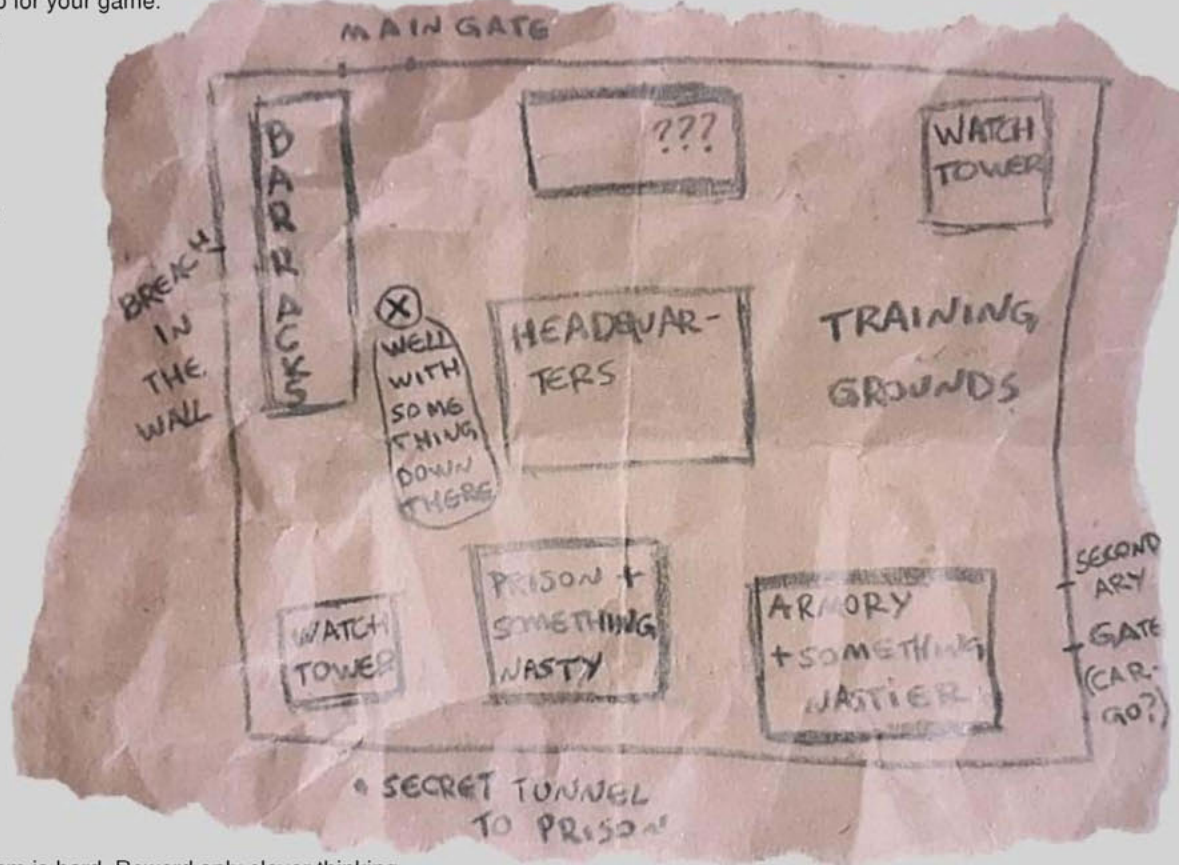 for your game.
MAIN GATE
BARRACKS
???
WATCH
TOWER
BREACH
IN
THE
WALL
X
WELL
WITH
SOME
THING
DOWN
THERE
HEADQUAR-
TERS
TRAINING
GROUNDS
WATCH
TOWER
PRISON +
SOMETHING
NASTY
ARMORY
+ SOMETHING
NASTIER
SECOND
ARY
GATE
(CAR-
GO?)
SECRET TUNNEL
TO PRISON
is hard. Reward only clever thinking